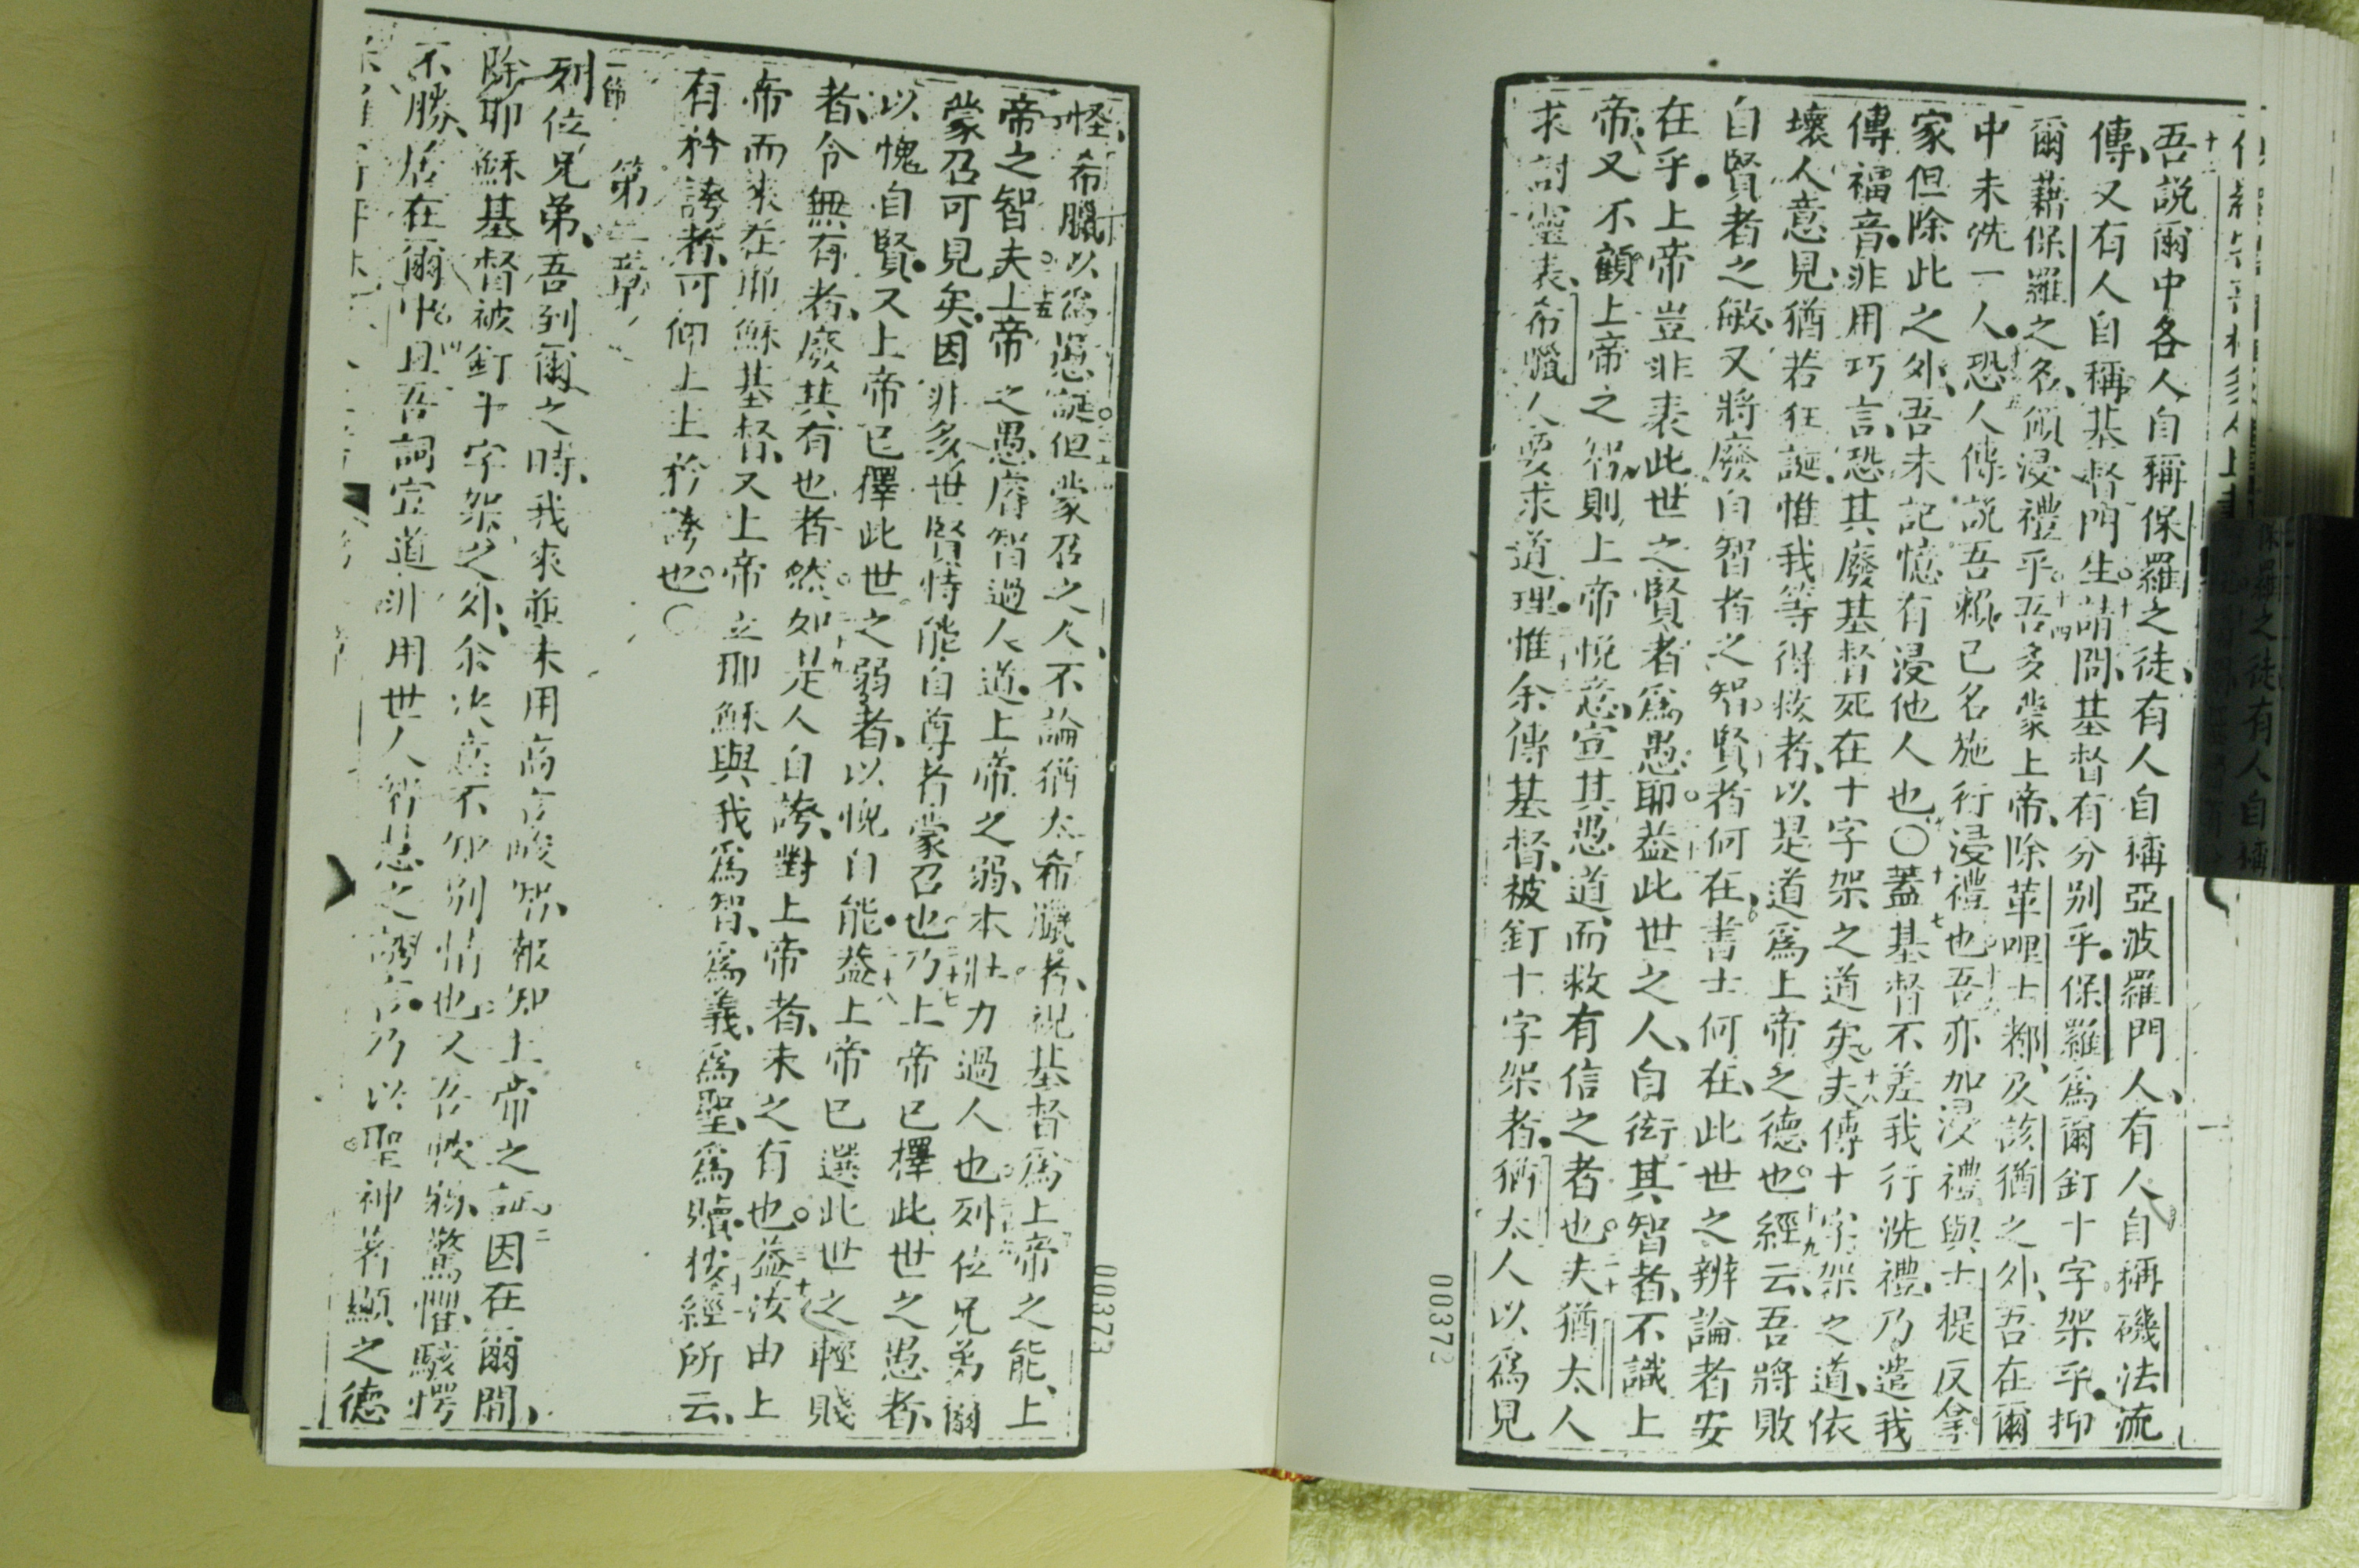 吾說爾中各人自稱保羅之徒、有人自稱亞波羅門人、有人自稱磯法流
傳、又有人自稱基督門生。請問、基督有分別乎。保羅爲爾釘十字架乎。抑
爾藉保羅之名、領浸禮乎。十四吾多蒙上帝、除革哩士都、及該猶之外、吾在爾
中未洗一人。十五恐人傳說吾賴己名施行浸禮也。吾亦加浸禮與士提反拿
家、但除此之外、吾未記憶有浸他人也。〇十七蓋基督不差我行洗禮、乃遣我
傳福音。非用巧言、恐其廢基督死在十字架之道矣。十八夫傳十字架之道、依
壞人意見、猶若狂誕、惟我等得救者、以是道爲上帝之德也。十九經云、吾將敗
自賢者之敏、又將廢自智者之智。賢者何在、書士何在、此世之辨論者安
在乎。上帝豈非表此世之賢者爲愚耶。益此世之人、自衒其智者、不識上
帝、又不顧上帝之智、則上帝悅意、宣其愚道、而救有信之者也。夫猶太人
求討靈表、希臘人要求道理。惟余傳基督、被釘十字架者、猶太人以爲見
怪、希臘以爲愚誕。但蒙召之人、不論猶太希臘者、視基督爲上帝之能、上
帝之智。夫上帝之愚、磨智過人道。上帝之弱、本壯力過人也。列位兄弟、爾
蒙召可見矣。因非多世賢恃能自尊者蒙召也。十七乃上帝已擇此世之愚者、
以愧自賢。又上帝已擇此世之弱者、以愧自能。十八益上帝已選此世之輕賤
者、令無有者、廢其有也者。十九然如是人自誇、對上帝者、未之有也。益汝由上
帝而來在耶穌基督、又上帝立耶穌與我爲智、爲義、爲聖、爲贖。按經所云、
有矜誇者、可仰上上矜誇也。〇
一節 第二章
列位兄弟、吾到爾之時、我來並未用高言駿智、報知上帝之証。二因在爾間、
除耶穌基督被釘十字架之外、余決意不知別情也。又吾軟弱驚懼、駭愕
不勝、居在爾中。四且吾詞宣道、非用世人智慧之謬言。乃以聖神著顯之德
00372
00373